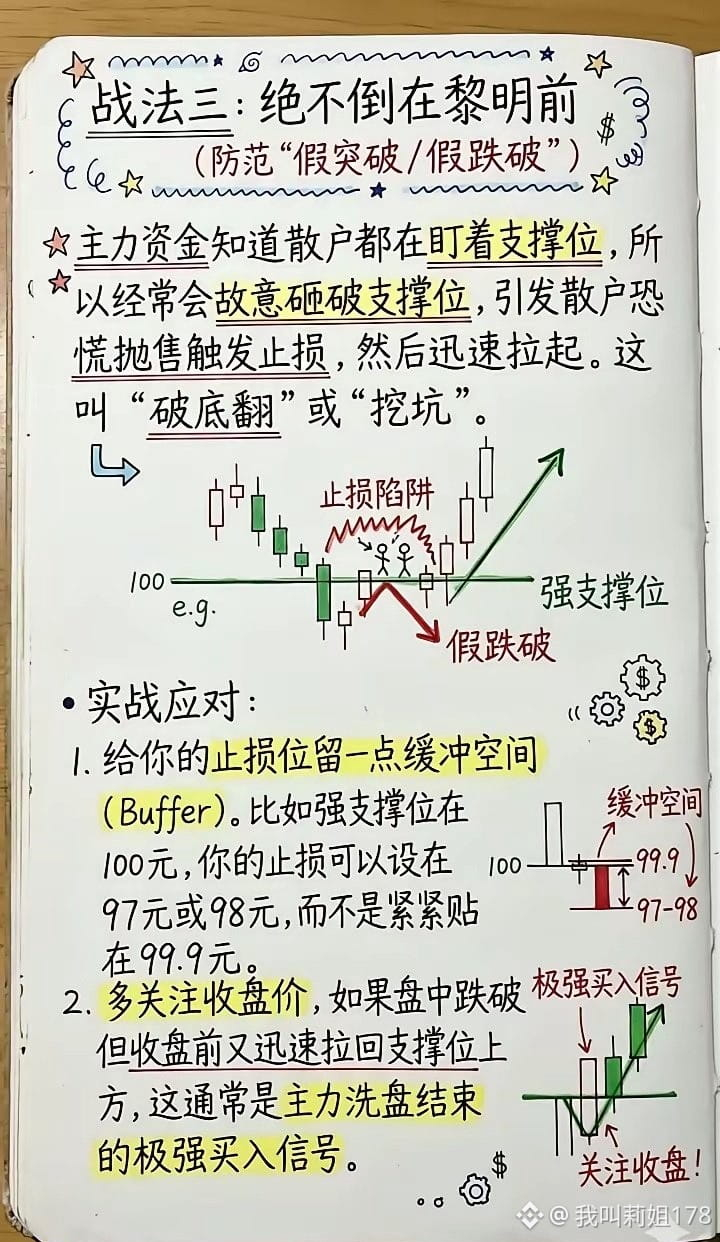 战法三：绝不倒在黎明前
（防范“假突破/假跌破”）
$
主力资金知道散户都在盯着支撑位，所
以经常会故意砸破支撑位，引发散户恐
慌抛售触发止损，然后迅速拉起。这
叫“破底翻”或“挖坑”。
止损陷阱
100
e.g.
强支撑位
假跌破
• 实战应对：
$
$
1. 给你的止损位留一点缓冲空间
（Buffer）。比如强支撑位在
100元，你的止损可以设在
97元或98元，而不是紧紧贴
在99.9元。
缓冲空间
100
99.9
97-98
2. 多关注收盘价，如果盘中跌破
但收盘前又迅速拉回支撑位上
方，这通常是主力洗盘结束
的极强买入信号。
极强买入信号
关注收盘！
$
@我叫莉姐178